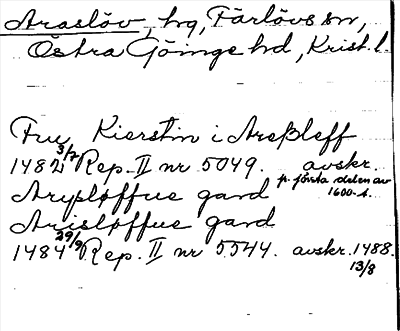 Araslöv, hg, Färlövs sn,
Östra Göinge hd, Krist. l.
Fru Kierstin i Areßleff
1482 3/7 Rep. II nr 5049. avskr.
p. första delen av
1600-t.
Arysløffue gard
Arisløffue gard
1484 29/9 Rep. II nr 5544. avskr. 1488.
13/8